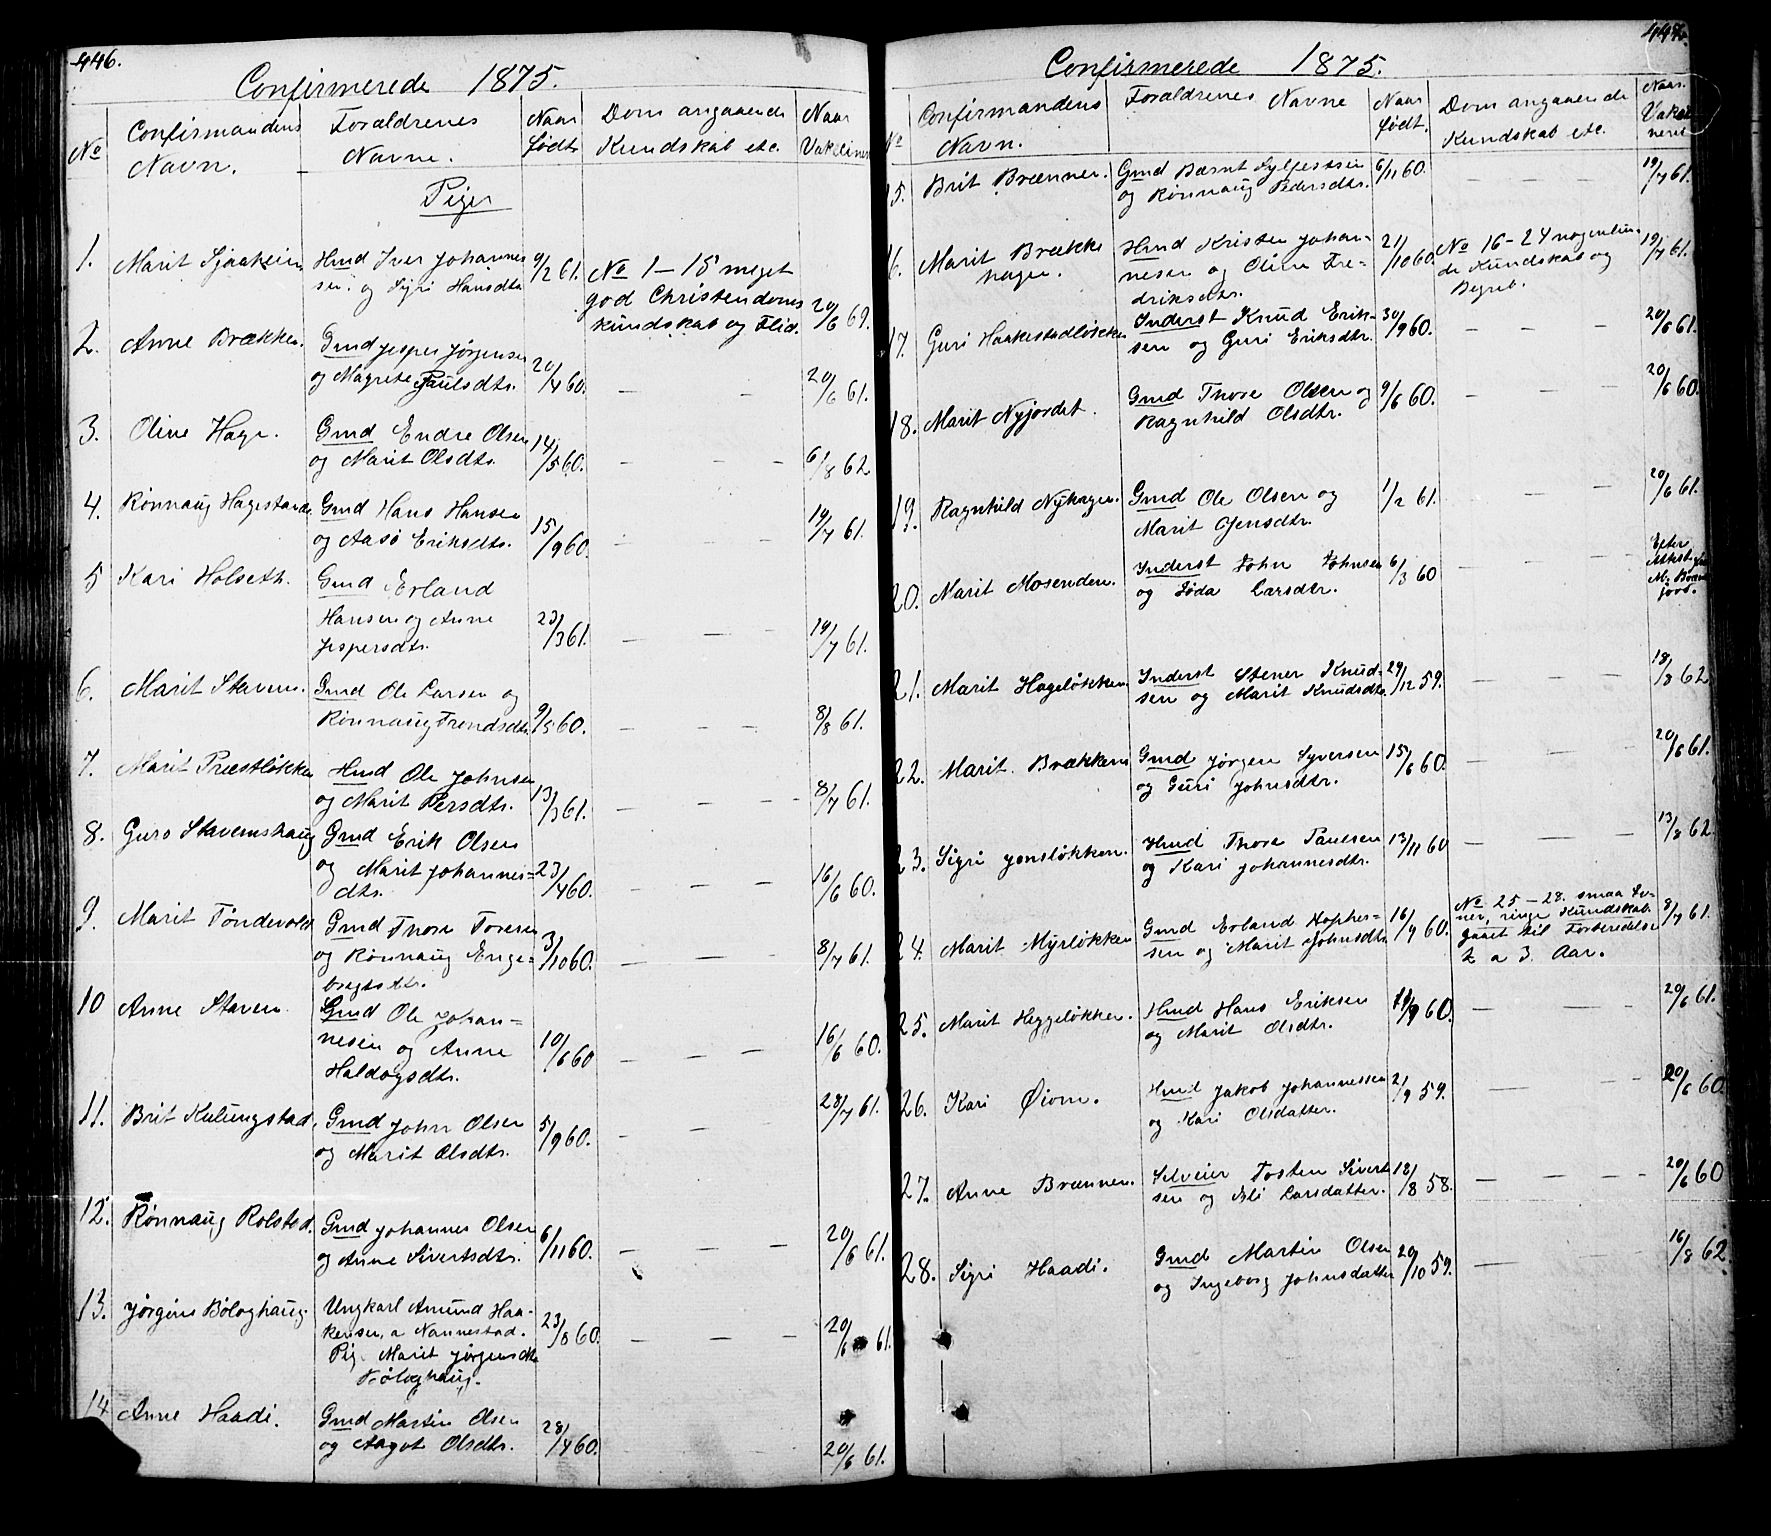 446.
Confirmerede 1875.
No Confirmandens Navn. Forældrenes Navne. Naar født Dom angaaende Kundskab etc. Naar Vakcineret
Piger
1. Marit Sjaaheim Hmd Iver Johannes- 9/2 61. No 1 - 15 meget
sen. og Sigri Hansdtr god Christendoms
kundskab og Flid. 20/6 69.
2. Anne Brækken. Gmd Jesper Jørgensen 20/4 60.
og Magrete Paulsdtr. — — 20/6 61.
3. Oline Hage. Gmd Endre Olsen 14/5 60.
og Marit Olsdtr. — — — 6/8 62
4. Rønnaug Hagestande Gmd Hans Hansen 15/9 60.
og Aasø Eriksdtr. — — — 19/7 61.
5 Kari Holseth. Gmd Erland
Hansen og Anne 23/3 61.
Jespersdtr. — — — 19/7 61.
6. Marit Stavem. Gmd Ole Larsen og
Rønnaug Trondsdtr. 9/5 60. — — — 8/8 61.
7. Marit Præstløkken Hmd Ole Johnsen
og Marit Persdtr. 13/3 61. — — — 8/7 61.
8. Guro Stavemshaug Gmd Erik Olsen
og Marit Johannes- 23/4 60.
dtr. — — — 16/6 60.
9. Marit Tøndevold Gmd Thore Toresen 3/10 60.
og Rønnaug Enge-
bregtsdtr. — — — 8/7 61.
10 Anne Stavem. Gmd Ole Johan-
nesen og Anne 10/6 60
Haldogsdtr. — — — 16/6 60.
11. Brit Kulungstad. Gmd John Olsen 5/9 60. 28/7 61.
og Marit Olsdtr. — — —
12. Rønnaug Rolstad. Gmd Johannes Olsen 6/11 60.
og Anne Sivertsdtr. — — — 20/6 61.
13. Jørgine Bøloghaug Ungkarl Amund Haa-
kensen, a Nannestad. 23/8 60.
Pig. Marit Jørgensdtr — — — 20/6 61.
Bøloghaug.
14 Anne Haadi. Gmd Martin Olsen 28/4 60.
og Aagot Olsdtr. — — — 20/6 61.
447.
Confirmerede 1875.
No Confirmandens Navn. Forældrenes Navne Naar født. Dom angaaende Kundskab etc. Naar Vakcineret
15. Brit Brænnen. Gmd Bærnt Sylfestsen 6/11 60. — — — 19/7 61.
og Rønnaug Pedersdtr.
16. Marit Brække Hmd Kristen Johan- 21/10 60. No 16 - 24 nogenlun- 19/7 61.
hagen. nesen og Oline Fre- de Kundskab og
driksdtr. Begreb.
17. Guri Haakestadløkken Inderst Knud Erik- 30/9 60. — — — 20/6 61.
sen og Guri Eriksdtr.
18. Marit Nyjordet. Gmd Thore Olsen og 9/6 60. — — — 20/6 60.
Ragnhild Olsdtr.
19. Ragnhild Nyhagen. Gmd Ole Olsen og 1/2 61. — — — 20/6 61.
Marit Jensdtr.
20. Marit Mosenden. Inderst John Johnsen 6/3 60 — — — Efter
og Søda Larsdtr. Attkst fra
21. Marit Hageløkken Inderst Stener Knud- 29/12 59. — — — 18/8 62
sen og Marit Knudsdtr
22. Marit. Brækken Gmd Jørgen Syversen 15/6 60. — — — 20/6 61.
og Guri Johnsdtr.
23. Sigri Jensløkken. Hmd Thore Paulsen 13/11 60 — — — 13/8 62.
og Kari Johannesdtr.
24. Marit Myrløkken Gmd Erland Stephen- 16/9 60. No 25 - 28. smaa Ev- 8/7 61.
sen og Marit Johnsdtr. ner, ringe Kundskab.
gaaet til Forberedelse
2 a 3. Aar.
25. Marit Heggeløkken. Hmd Hans Eriksen 11/9 60. — — — 20/6 61.
og Marit Olsdtr.
26. Kari Øiom. Hmd Jakob Johannessen 21/9 59. — — — 20/6 60.
og Kari Olsdatter.
27. Anne Brænnen. Selveier Tosten Sivert 18/8 58. — — — 20/6 60
sen og Eli Larsdatter.
28. Sigri Haadi. Gmd Martin Olsen 20/10 59. — — — 16/8 62
og Ingeborg Johnsdatter